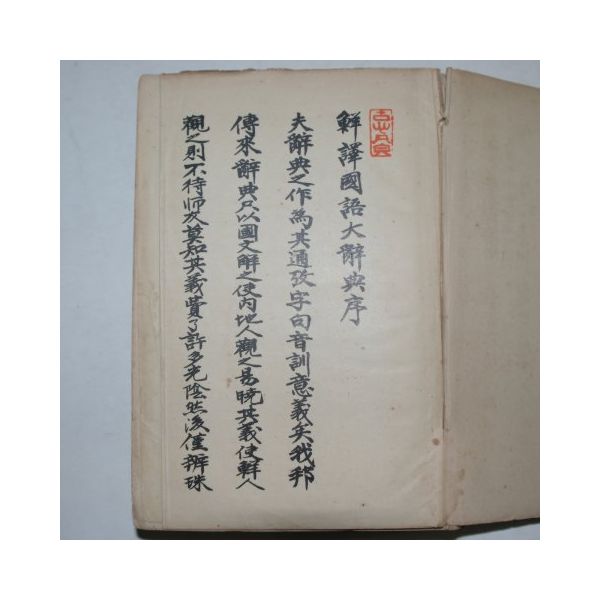 鮮譯國語大辭典序
夫辭典之作為其通攷字句音訓意義矣我邦
傳來辭典只以國文解之使內地人觀之易曉其義使鮮人
觀之則不待师友莫知其義費了許多光陰然後僅辨珠